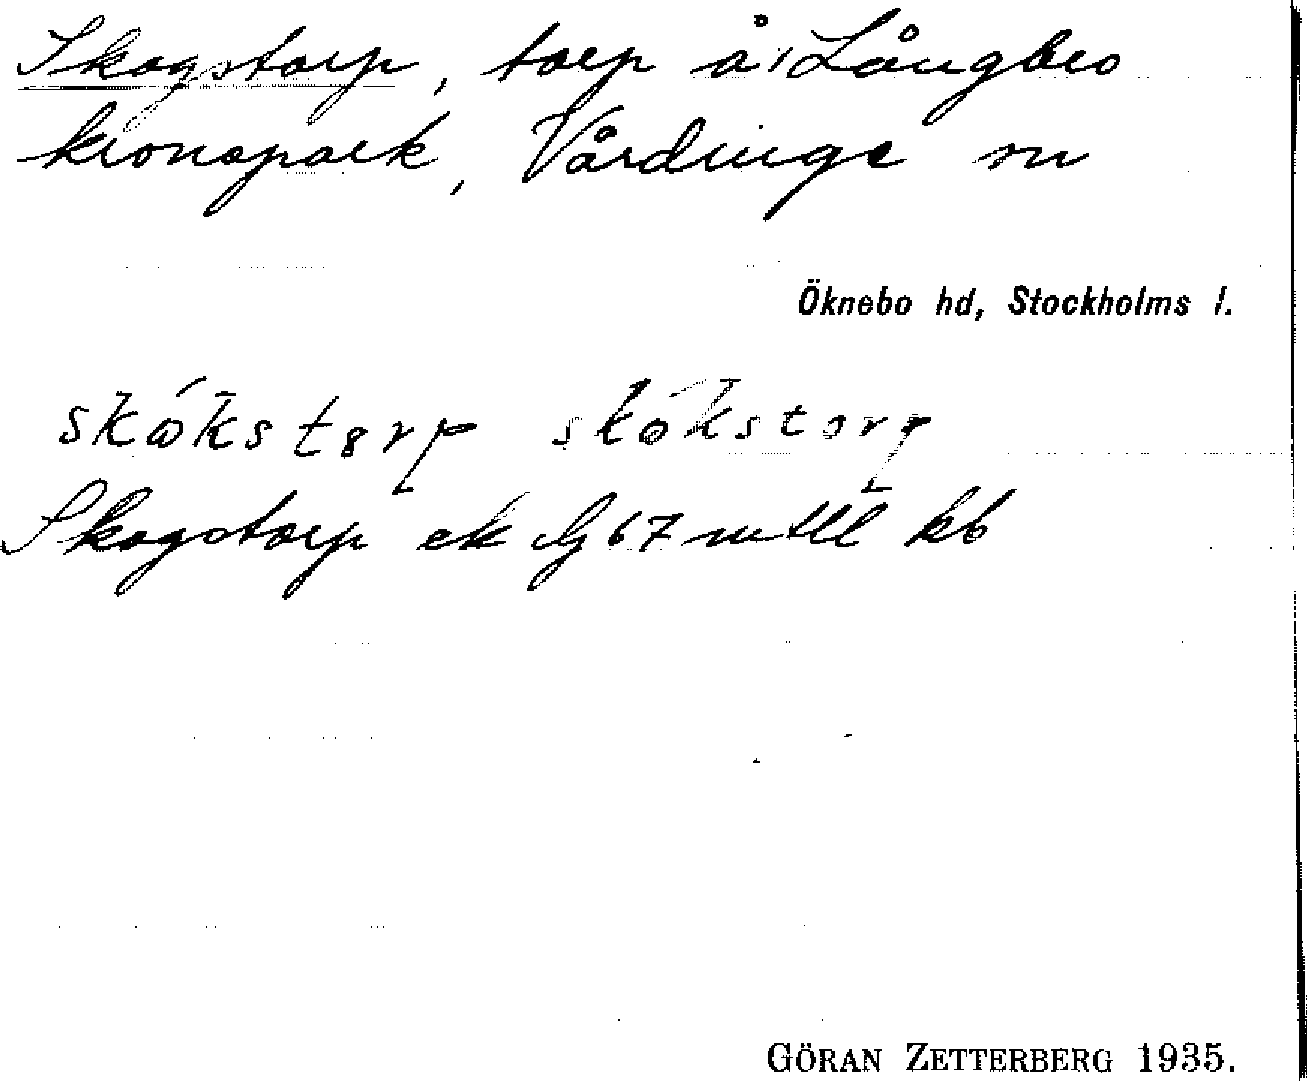 Skogstorp, torp å Långbro
kronopark, Vårdinge sn
Öknebo hd, Stockholms l.
skókstorp skókstorp
Skogstorp ek G 67 mtll kb
GÖRAN ZETTERBERG 1935.